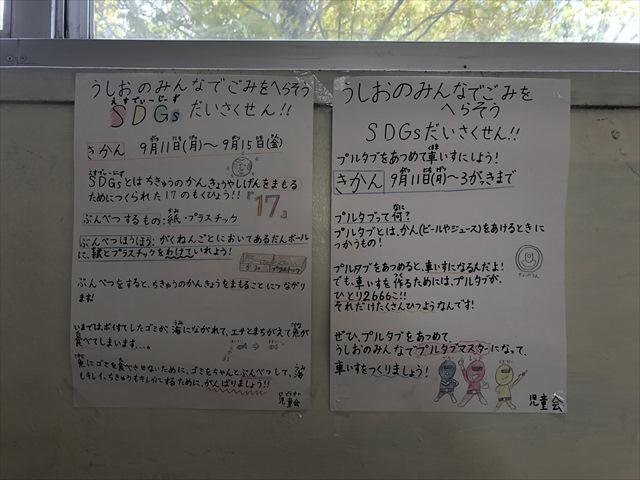 うしおのみんなでごみをへらそう
えすでぃーじーず
SDGs だいさくせん!!
きかん 9月11日(月)～9月15日(金)
えすでぃーじーず
SDGsとはちきゅうのかんきょうやしげんをまもる
ためにつくられた17のもくひょう!!
『17』
ぶんべつするもの:紙・プラスチック
ぶんべつほうほう:がくねんごとにおいてあるだんボール
に、紙とプラスチックをわけていれよう!
かみ プラスチック
ぶんべつをすると、ちきゅうのかんきょうをまもることにつながり
ます!
いまでは、ポイすてしたゴミが、海にながされて、エサとまちがえて魚が
食べてしまいます...。
魚にゴミを食べさせないために、ゴミをちゃんとぶんべつして、海
もキレイ、ちきゅうもキレイにするために、がんばりましょう!!
児童会
うしおのみんなでごみを
へらそう
SDGsだいさくせん!!
プルタブをあつめて車いすにしよう!
きかん 9月11日(月)～3がつきまで
プルタブって何?
プルタブとは、かん(ビールやジュース)をあけるときに
つかうもの!
プルタブをあつめると、車いすになるんだよ!
でも、車いすを作るためには、プルタブが、
ひとり2666こ!!
それだけたくさんひつようなんです!
ぜひ、プルタブをあつめて、
うしおのみんなでプルタブマスターになって、
車いすをつくりましょう!
児童会